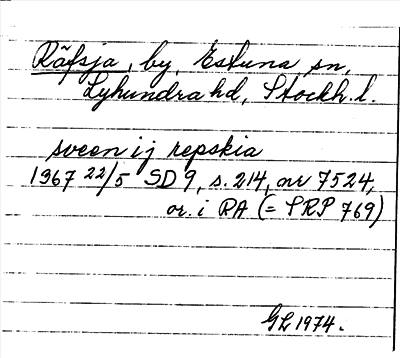 Räfsja, by, Estuna sn,
Lyhundra hd, Stockh. l.
sveen ij repskia
1967 22/5 SD 9, s. 214, nr 7524,
or. i RA (= SRP 769)
GL 1974.